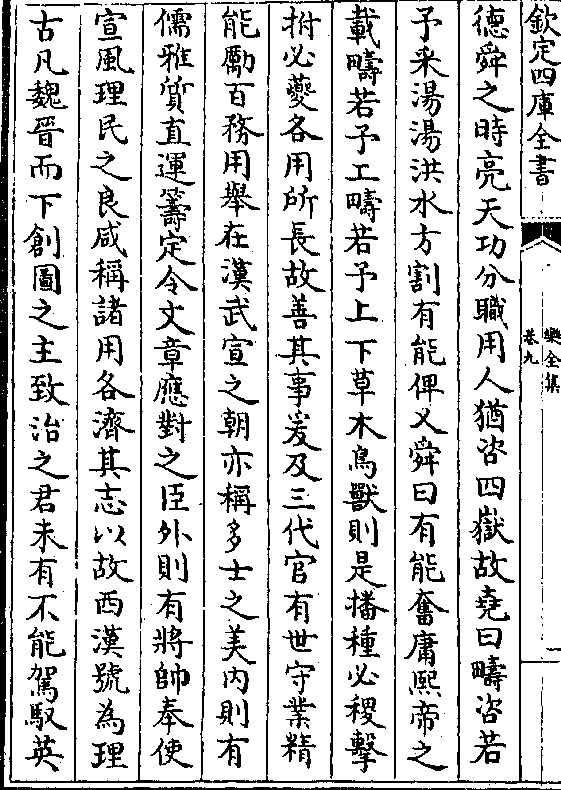 欽定四庫全書
樂全集
卷九
一
德舜之時亮天功分職用人猶咨四嶽故堯曰疇咨若
予采湯湯洪水方割有能俾乂舜曰有能奮庸熙帝之
載疇若予工疇若予上下草木鳥獸則是播種必稷擊
拊必夔各用所長故善其事爰及三代官有世守業精
能勵百務用舉在漢武宣之朝亦稱多士之美内則有
儒雅質直運籌定令文章應對之臣外則有將帥奉使
宣風理民之良咸稱諸用各濟其志以故西漢號為理
古凡魏晉而下創圖之主致治之君未有不能駕馭英